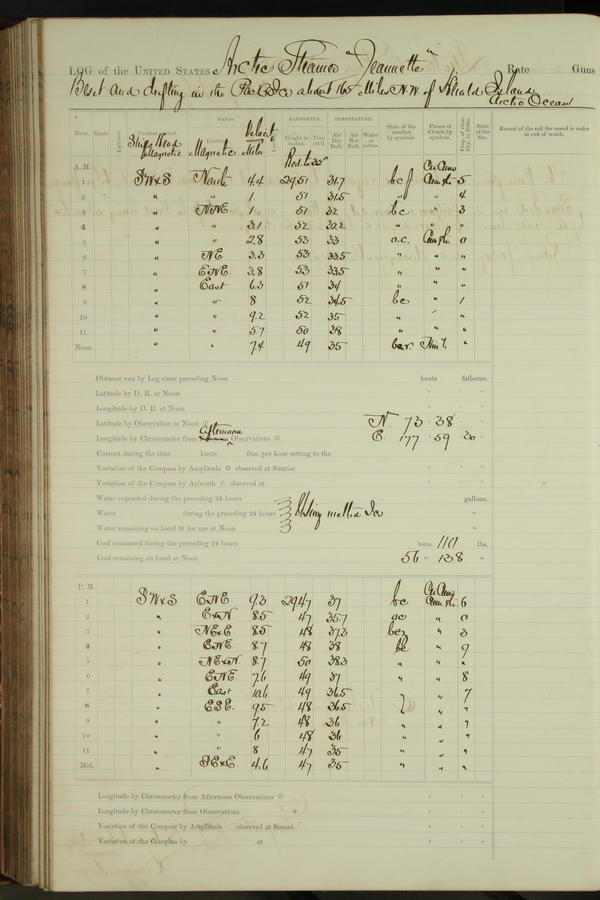 LOG of the UNITED STATES Arctic Steamer "Jeannette" Rate Guns
Beset and drifting in the Pack Ice about 160 Miles N.W. of Herald Island
Arctic Ocean
WINDS. Velocity BAROMETER. TEMPERATURE.
Hour. Knots. Fathoms. Ships Head Magnetic Magnetic Miles Height in inches. Ther. att'd. Air Dry Bulb. Air Wet Bulb. Water at surface. State of the weather by symbols. Forms of Clouds by symbols. State of the Sea. Record of the sail the vessel is under at end of watch.
Red. to 32°
A. M. Cir Cum
1 SW x S North 4.4 29.51 31.7 bcf Cum Str. 5
2 " " 1. 51 31.5 " " 4
3 " NNE 1 51 32 bc " 3
4 " " 3.1 52 32.2 " " "
5 " " 2.8 53 33 o.c. Cum Str. 0
6 " NE 3.3 53 33.5 " " "
7 " ENE 3.8 53 33.5 " " "
8 " East 6.3 51 34 " " "
9 " " 8 52 34.5 bc " 1
10 " " 9.2 52 35 " " "
11 " " 5.7 50 38 " " "
Noon. " " 7.4 49 35 "
Distance run by Log since preceding Noon knots fathoms.
Latitude by D. R. at Noon
Longitude by D. R. at Noon
Latitude by Observation at Noon N. 73 · 38
Longitude by Chronometer from afternoon Observations E. 177 · 59 · 30
Current during the time knots fms. per hour setting to the
Variation of the Compass by Amplitude observed at Sunrise
Variation of the Compass by Azimuth observed at
Water expended during the preceding 24 hours gallons.
Water during the preceding 24 hours Using melted Ice "
Water remaining on hand fit for use at Noon "
Coal consumed during the preceding 24 hours tons. lbs.
Coal remaining on hand at Noon 56 " 138 "
P. M. Cir Cum
1 SW x S ENE 9.3 29.47 37 bc Cum Str. 6
2 " ExN. 8.5 47 35.7 oc " 0
3 " NExE 8.5 48 37.3 " 3
4 " ENE. 8.7 48 38 bc " 9
5 " NExN. 8.7 50 38.3 " " "
6 " ENE 7.6 49 37 " " 8
7 " East 10.6 49 36.5 " 7
8 " ESE. 9.5 48 36.5 " "
9 " " 7.2 48 36 " " "
10 " " 6 48 36 " " "
11 " " 8 47 35 " " "
Mid. " SExE 4.6 47 35 " " "
Longitude by Chronometer from Afternoon Observations
Longitude by Chronometer from Observations
Variation of the Compass by Amplitude observed at Sunset
Variation of the Compass by at